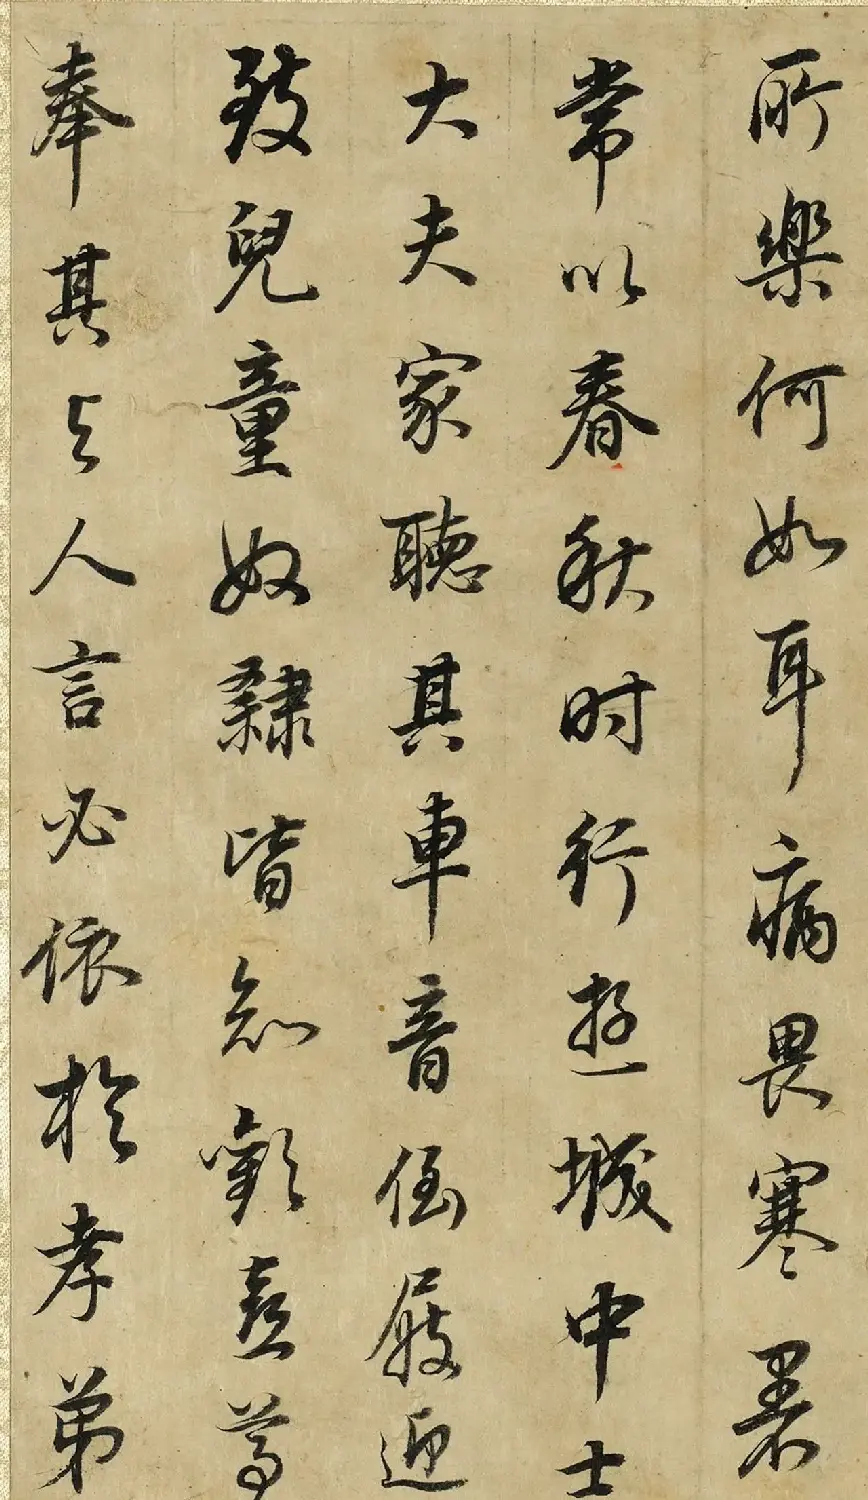 所樂何如耳病畏寒暑
常以春秋时行遊城中士
大夫家聽其車音倒屐迎
致兒童奴隸皆知歡喜尊
奉其与人言必依於孝弟